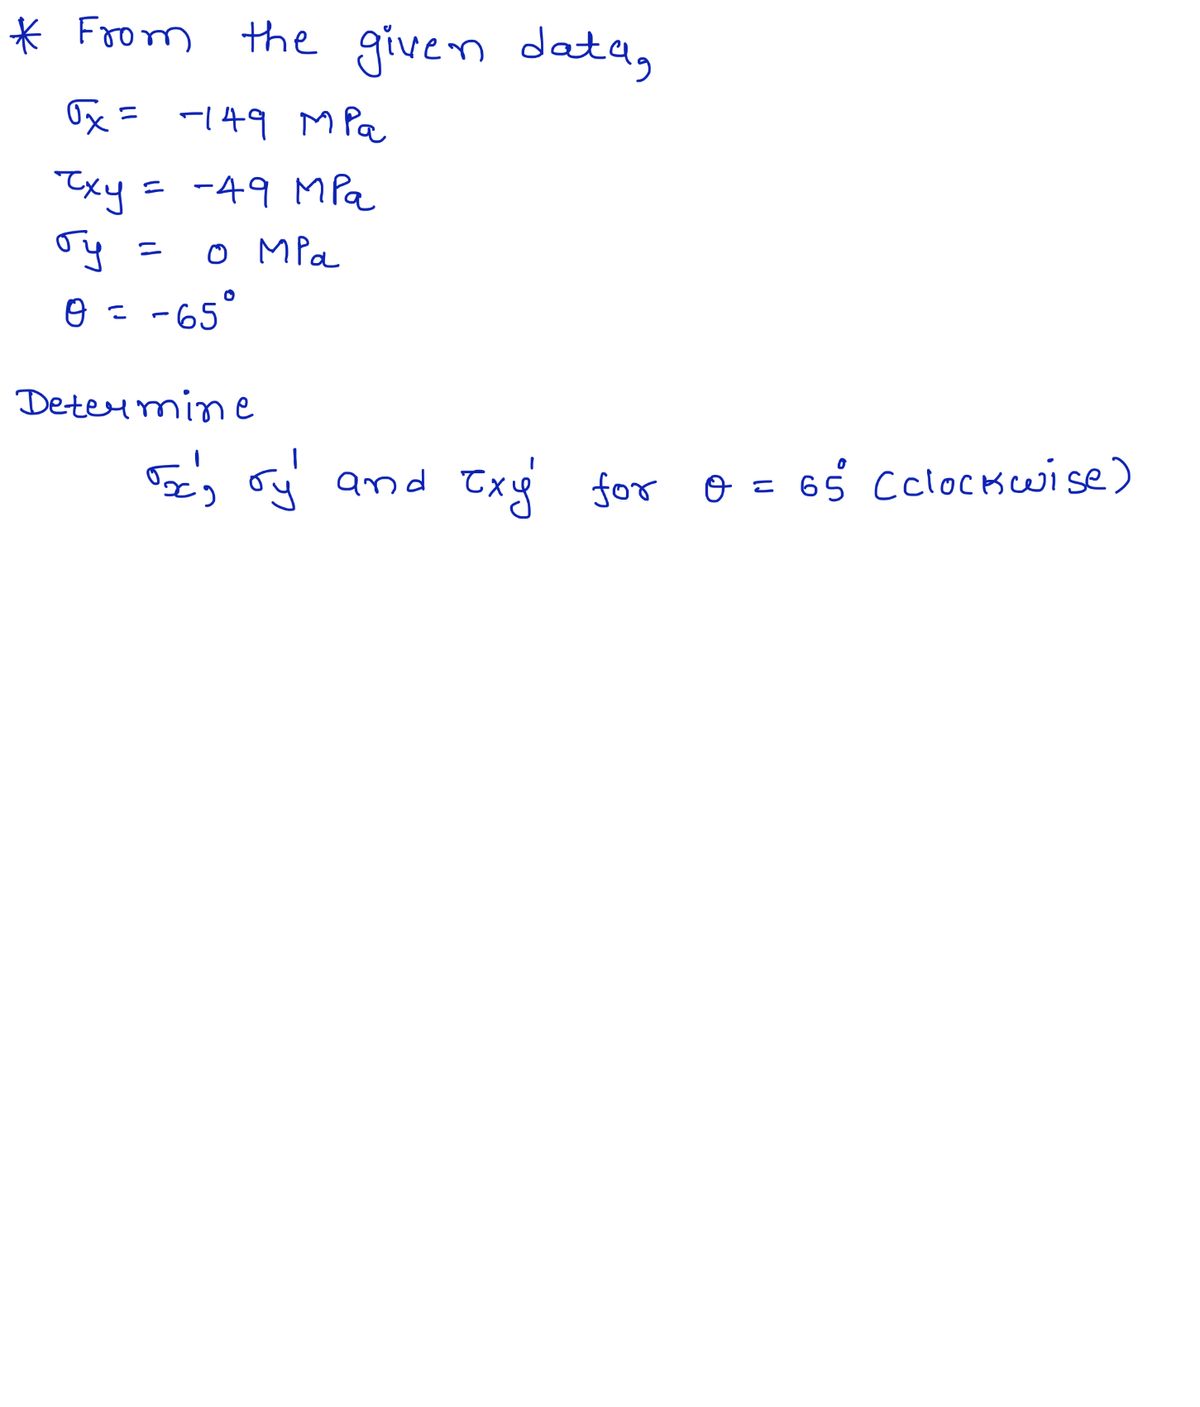 * From the given data,
σx = -149 MPa
τxy = -49 MPa
σy = 0 MPa
θ = -65°
Determine
σx', σy' and τxy' for θ = 65° (clockwise)